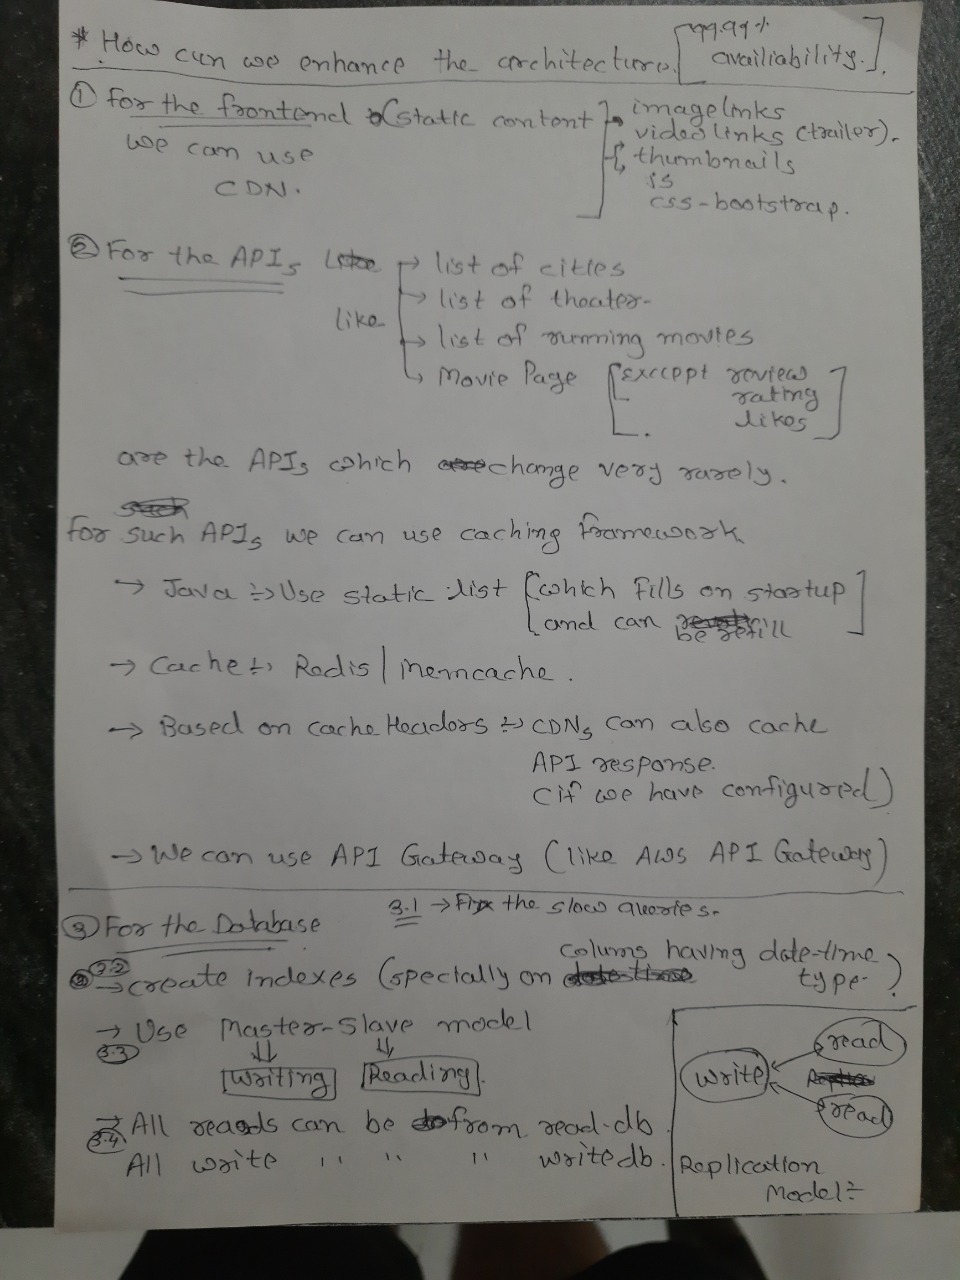 * How can we enhance the architecture. [99.99% availiability.]
① For the frontend (static content
We can use
CDN.
imagelinks
video links (trailer).
thumbnails
js
css-bootstrap.
② For the APIs like
list of cities
list of theater
list of running movies
Movie Page [exccppt review
rating
likes]
are the APIs which change very rarely.
For such APIs we can use caching framework
→ Java :→ Use static list [which fills on startup
and can be refill]
→ Cache :→ Redis | memcache.
→ Based on cache Headers :→ CDNs can also cache
API response.
(if we have configured)
→ We can use API Gateway (like AWS API Gateway)
③ For the Database 3.1 → Fix the slow queries.
3.2 → create indexes (specially on colums having date-time type.)
→ Use Master-Slave model
3.3
Writing Reading
→ All reads can be from read-db.
3.4
All write " " " write db.
write
read
read
Replication
Model:-